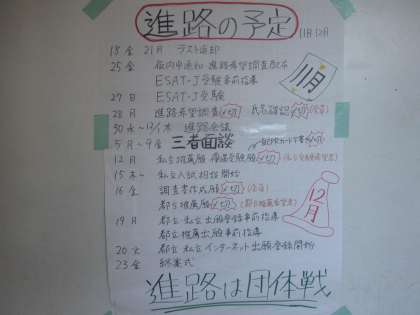 進路の予定 11月12月
18金 21月 ラスト返却
25金 仮内申通知 進路希望調査配布
ESAT-J受験事前指導
11月
27日 ESAT-J受験
28月 進路希望調査〆切 氏名確認〆切(全員)
30水～12/1木 進路会議
5月～9金 三者面談
12月 私立推薦願・併願受験願〆切
15木～ 私立入試相談開始
16金 調査書作成願〆切(全員)
都立推薦願〆切(都立推薦希望者)
12月
19月 都立・私立出願登録事前指導
都立推薦出願事前指導
20火 都立・私立インターネット出願登録開始
23金 終業式
進路は団体戦